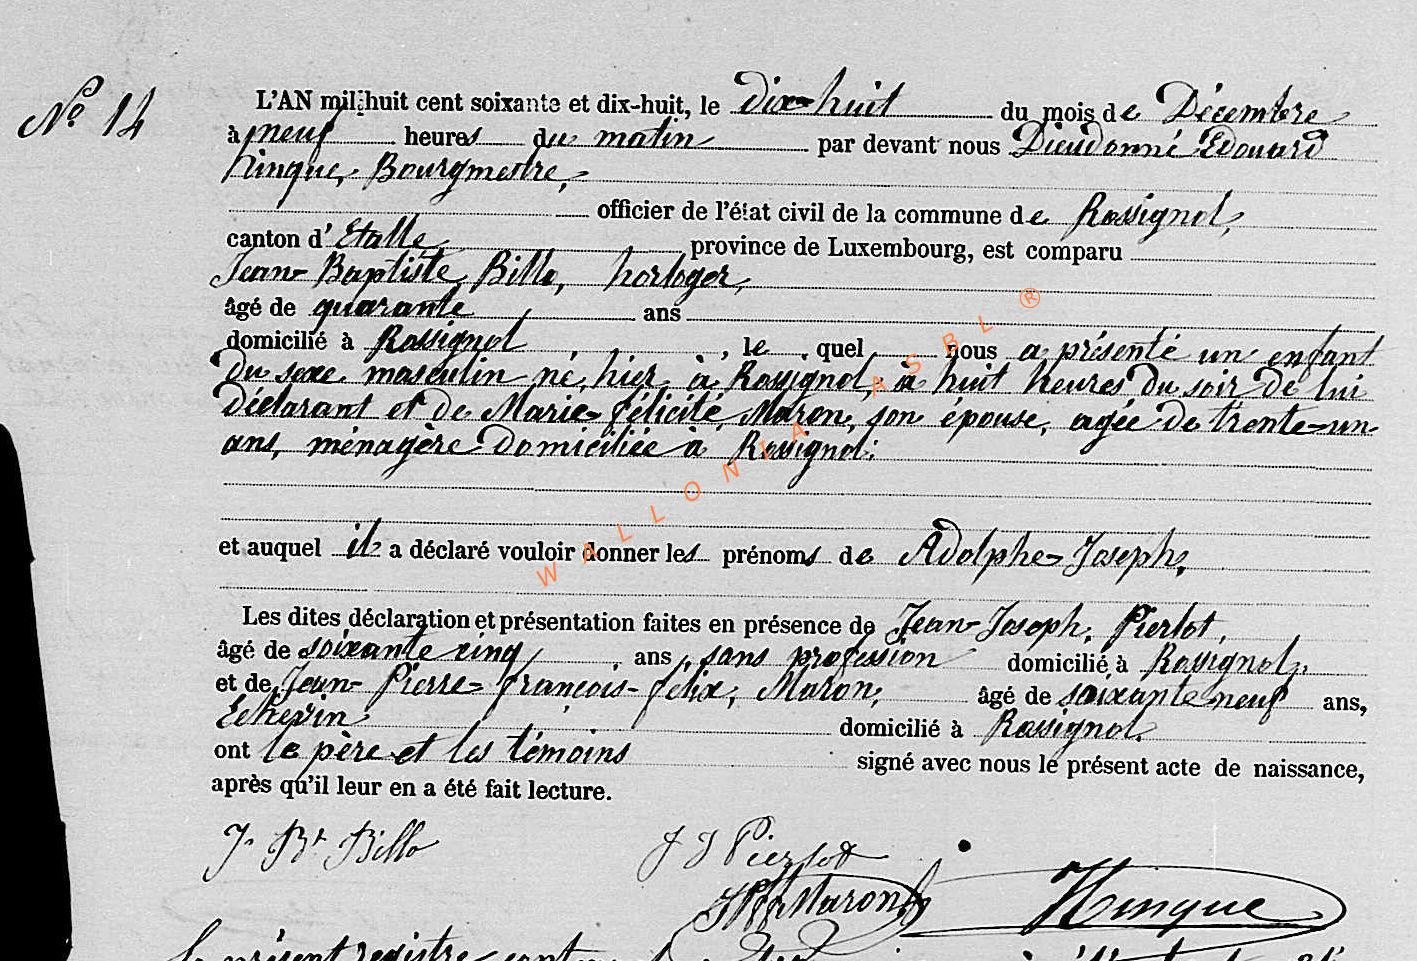 No 14
L'AN mil huit cent soixante et dix-huit, le dix-huit du mois de Décembre
à neuf heures du matin par devant nous Dieudonné Edouard
Hinque, Bourgmestre,
officier de l'état civil de la commune de Rossignol,
canton d'Etalle, province de Luxembourg, est comparu
Jean Baptiste Billo, horloger,
âgé de quarante ans
domicilié à Rossignol, le quel nous a présenté un enfant
du sexe masculin né, hier, à Rossignol, à huit heures du soir de lui
déclarant et de Marie-Félicité, Maron, son épouse, agée de trente-un
ans, ménagère domiciliée à Rossignol.
et auquel il a déclaré vouloir donner les prénoms de Adolphe-Joseph,
Les dites déclaration et présentation faites en présence de Jean-Joseph, Pierlot,
âgé de soixante cinq, ans, sans profession domicilié à Rossignol,
et de Jean-Pierre-François-Félix, Maron, âgé de soixante neuf ans,
Echevin domicilié à Rossignol.
ont le père et les témoins signé avec nous le présent acte de naissance,
après qu'il leur en a été fait lecture.
J. Bt Billo J J Pierlot
Maron Hinque
Le présent registre
WALLONIA ASBL ®